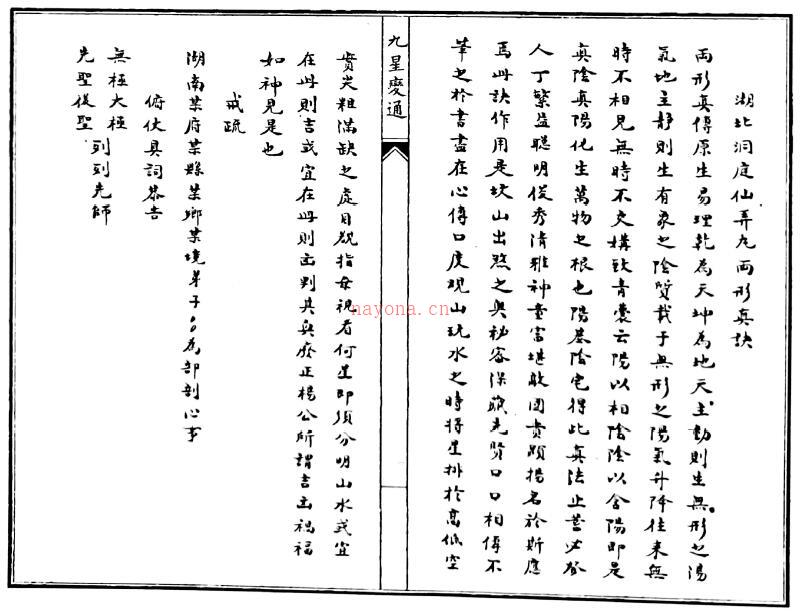 湖北洞庭仙弄九两形真訣
两形真傳原生易理乾為天坤為地天主動則生無形之陽
氣地主静則生有象之陰質載于無形之陽氣升降往来無
時不相見無時不交構故青囊云陽以相陰陰以含陽即是
真陰真陽化生萬物之根也陽基陰宅得此真法止葬必發
人丁繁益聰明俊秀清雅神童富堪敵國貴顕揚名於斯應
焉此訣作用是坎山出煞之奥秘密深藏先賢口口相傳不
筆之於書盡在心傳口度观山玩水之時将星排於高低空
九星変通
實尖粗滿缺之處目覩指母視看何星即須分明山水或宜
在此則吉或宜在此則凶判其興廢正楊公所謂吉凶禍福
如神見是也
戒疏
湖南某府某縣某鄉某境弟子○○為部剖心事
俯伏具詞恭告
無極太極
列列先師
先聖後聖
nayona.cn